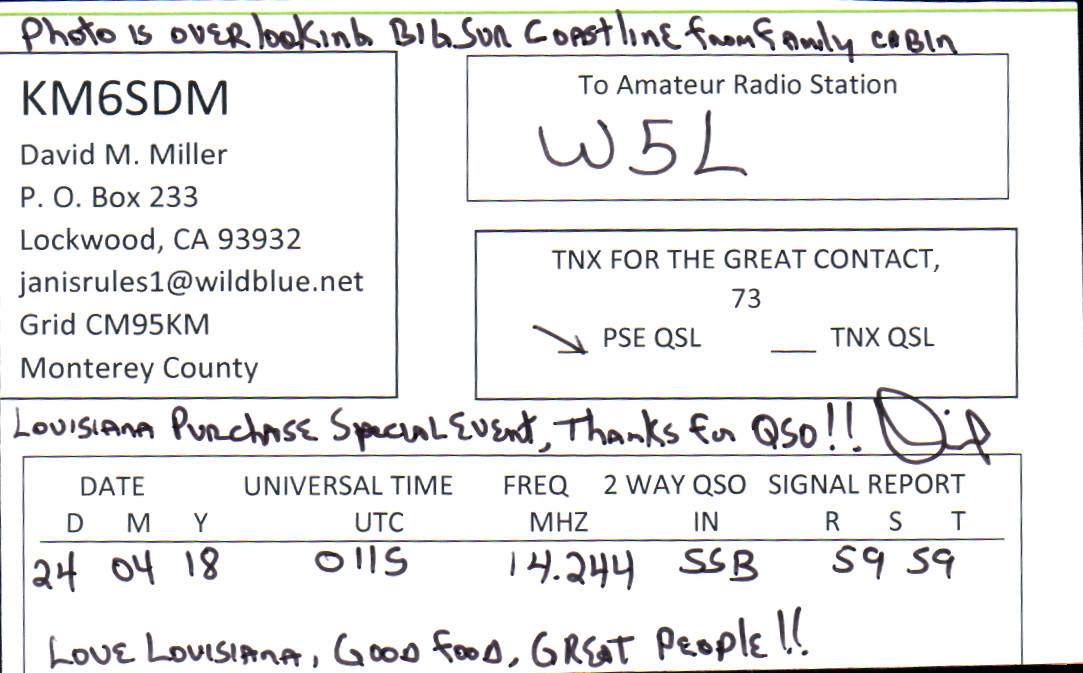 Photo is overlooking Big Sur Coastline from family cabin
KM6SDM
David M. Miller
P. O. Box 233
Lockwood, CA 93932
janisrules1@wildblue.net
Grid CM95KM
Monterey County
To Amateur Radio Station
W5L
TNX FOR THE GREAT CONTACT,
73
PSE QSL ___ TNX QSL
Louisiana Purchase Special Event, Thanks for QSO!!
DATE UNIVERSAL TIME FREQ 2 WAY QSO SIGNAL REPORT
D M Y UTC MHZ IN R S T
24 04 18 0115 14.244 SSB 59 59
Love Louisiana, Good food, Great People!!